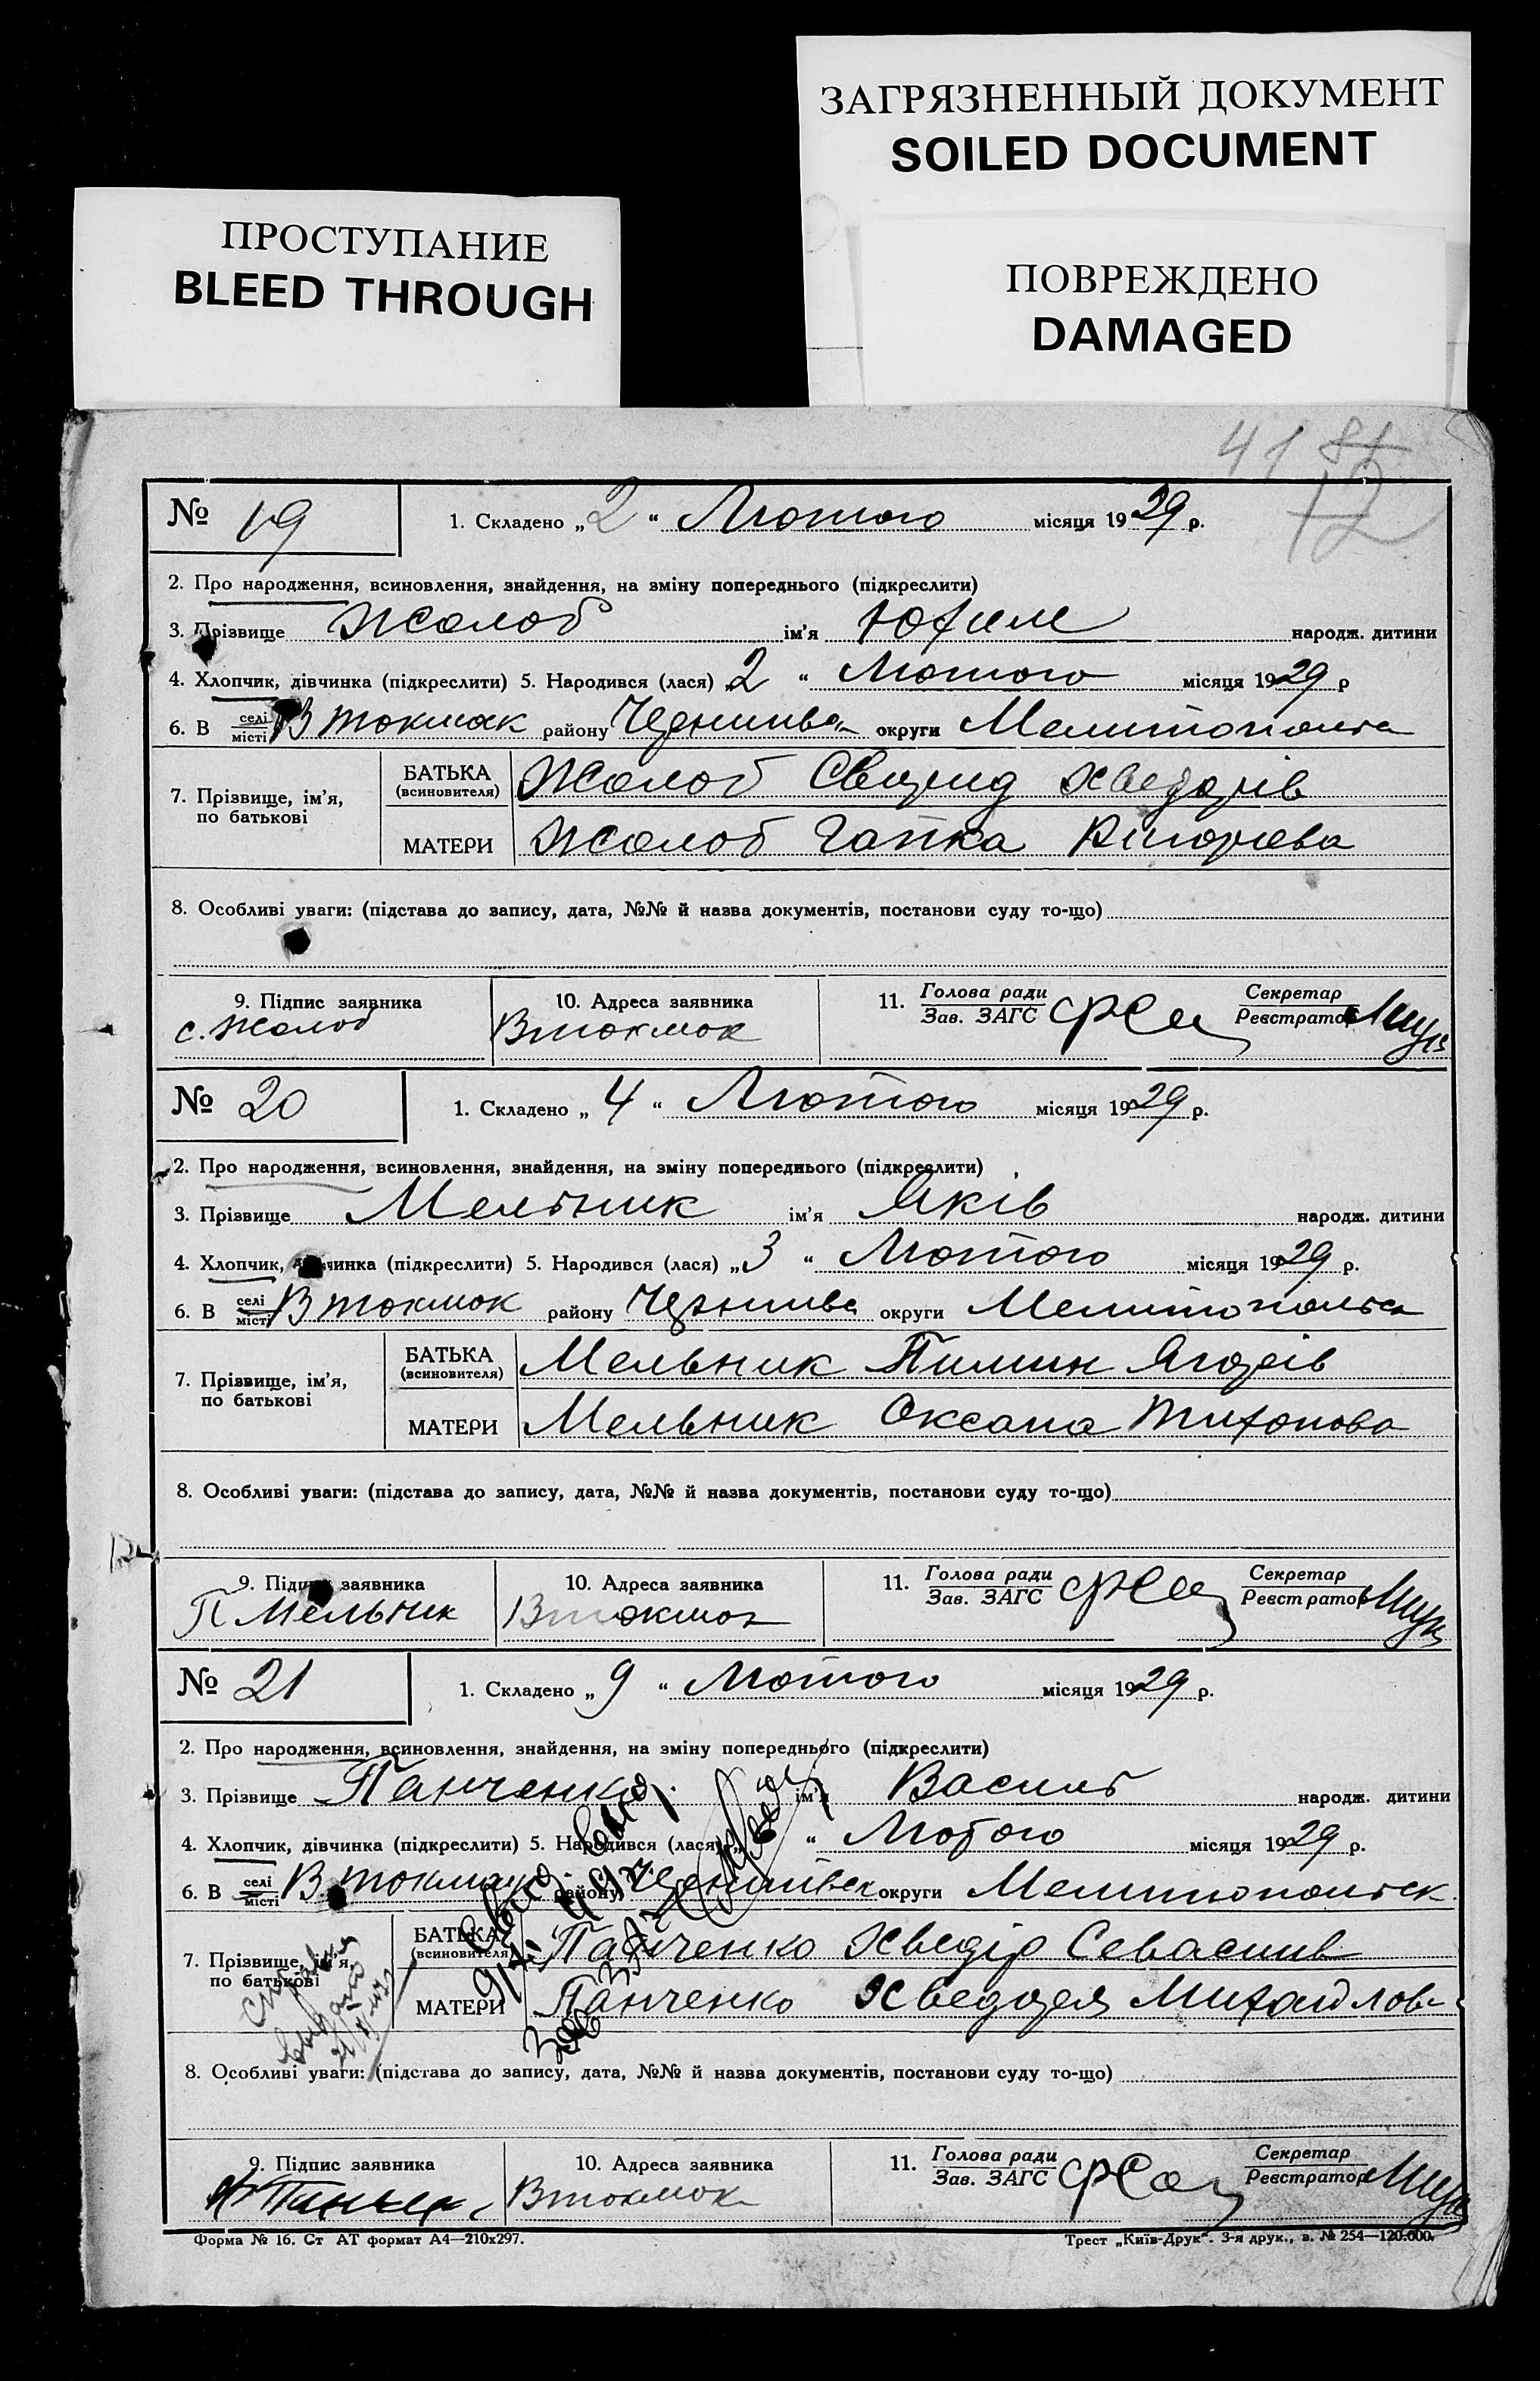 ЗАГРЯЗНЕННЫЙ ДОКУМЕНТ
SOILED DOCUMENT
ПРОСТУПАНИЕ
BLEED THROUGH
ПОВРЕЖДЕНО
DAMAGED
41 81
12
№ 19 1. Складено „2“ Лютого місяця 1929 р.
2. Про народження, всиновлення, знайдення, на зміну попереднього (підкреслити)
3. Прізвище Жолоб ім'я Юхим народж. дитини
4. Хлопчик, дівчинка (підкреслити) 5. Народився (лася) „2“ Лютого місяця 1929 р
6. В селі місті В токмак району округи
7. Прізвище, ім'я, по батькові
БАТЬКА (всиновителя) Жолоб Свирид Хведорів
МАТЕРИ Жолоб Гапка
8. Особливі уваги: (підстава до запису, дата, №№ й назва документів, постанови суду то-що)
9. Підпис заявника 10. Адреса заявника 11. Голова ради Зав. ЗАГС Секретар Реєстратор
с. Жолоб Втокмок
№ 20 1. Складено „4“ Лютого місяця 1929 р.
2. Про народження, всиновлення, знайдення, на зміну попереднього (підкреслити)
3. Прізвище Мельник ім'я Яків народж. дитини
4. Хлопчик, дівчинка (підкреслити) 5. Народився (лася) „3“ Лютого місяця 1929 р.
6. В селі місті В токмок району округи
7. Прізвище, ім'я, по батькові
БАТЬКА (всиновителя) Мельник Пимин
МАТЕРИ Мельник Оксана Тихонова
8. Особливі уваги: (підстава до запису, дата, №№ й назва документів, постанови суду то-що)
9. Підпис заявника 10. Адреса заявника 11. Голова ради Зав. ЗАГС Секретар Реєстратор
П Мельник Втокмок
№ 21 1. Складено „9“ Лютого місяця 1929 р.
2. Про народження, всиновлення, знайдення, на зміну попереднього (підкреслити)
3. Прізвище Панченко ім'я Василь народж. дитини
4. Хлопчик, дівчинка (підкреслити) 5. Народився (лася) „ “ Лютого місяця 1929 р.
6. В селі місті В. токмак району округи Мелитопольськ
7. Прізвище, ім'я, по батькові
БАТЬКА (всиновителя) Панченко Хведір
МАТЕРИ Панченко Хведора
8. Особливі уваги: (підстава до запису, дата, №№ й назва документів, постанови суду то-що)
9. Підпис заявника 10. Адреса заявника 11. Голова ради Зав. ЗАГС Секретар Реєстратор
Втокмок
Форма № 16. Ст АТ формат А4—210х297. Трест „Київ-Друк“. 3-я друк., в. № 254—120.000.